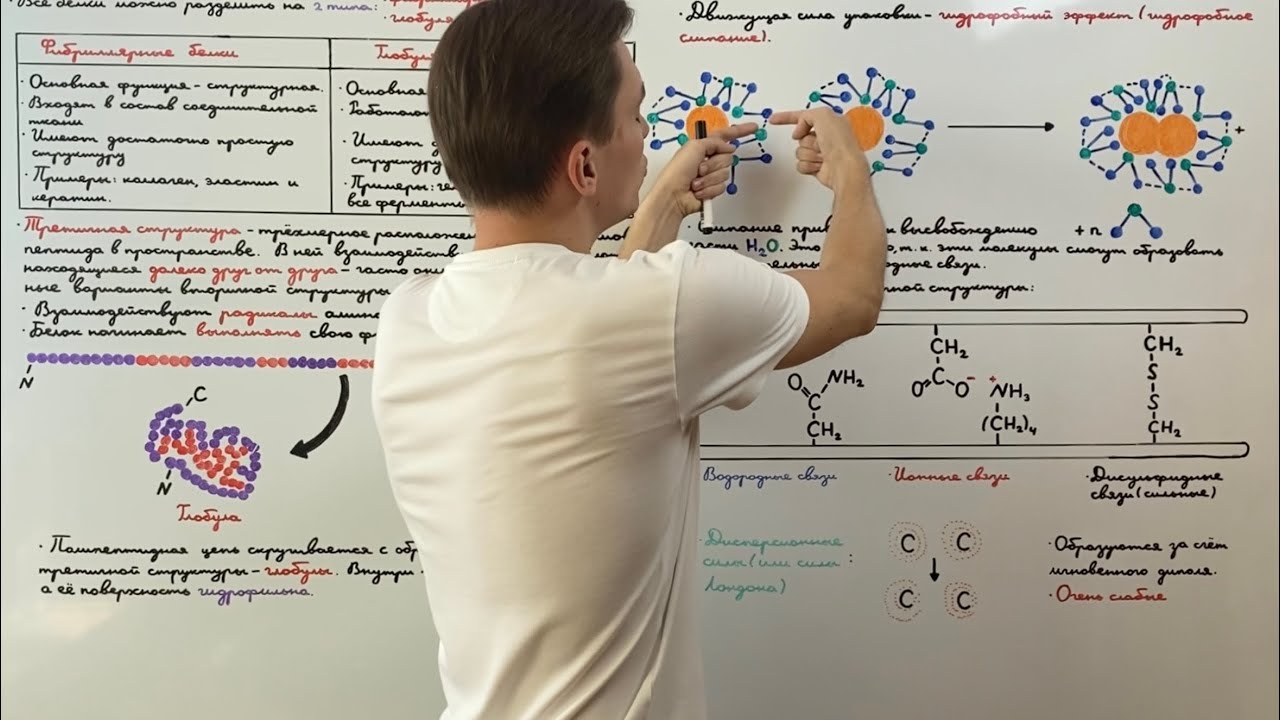 Все белки можно разделить на 2 типа:
глобуля
Фибриллярные белки
Глобул
· Основная функция - структурная.
· Входят в состав соединительной
ткани
· Имеют достаточно простую
структуру
· Примеры: коллаген, эластин и
кератин.
· Основная
· Работаю
· Имеют д
структуру
· Примеры: ге
все фермент
· Третичная структура - трёхмерное расположе
пептида в пространстве. В ней взаимодейств
находящиеся далеко друг от друга - часто он
ные варианты вторичной структуры
· Взаимодействуют радикалы амин
· Белок начинает выполнять свою ф
N
C
N
Глобула
· Полипептидная цепь скручивается с об
третичной структуры - глобулы. Внутри
а её поверхность гидрофильна.
· Движущая сила упаковки - гидрофобный эффект (гидрофобное
слипание).
+
+ n
· Слипание при
и высвобождению
части H₂O. Это
о, т. к. эти молекулы смогут образовать
дные связи.
ной структуры:
O
NH₂
C
CH₂
CH₂
C
O
O⁻
⁺NH₃
(CH₂)₄
CH₂
S
S
CH₂
Водородные связи
· Ионные связи
· Дисульфидные
связи (сильные)
· Дисперсионные
силы (или силы :
Лондона)
C C
C C
· Образуются за счёт
мгновенного диполя.
· Очень слабые